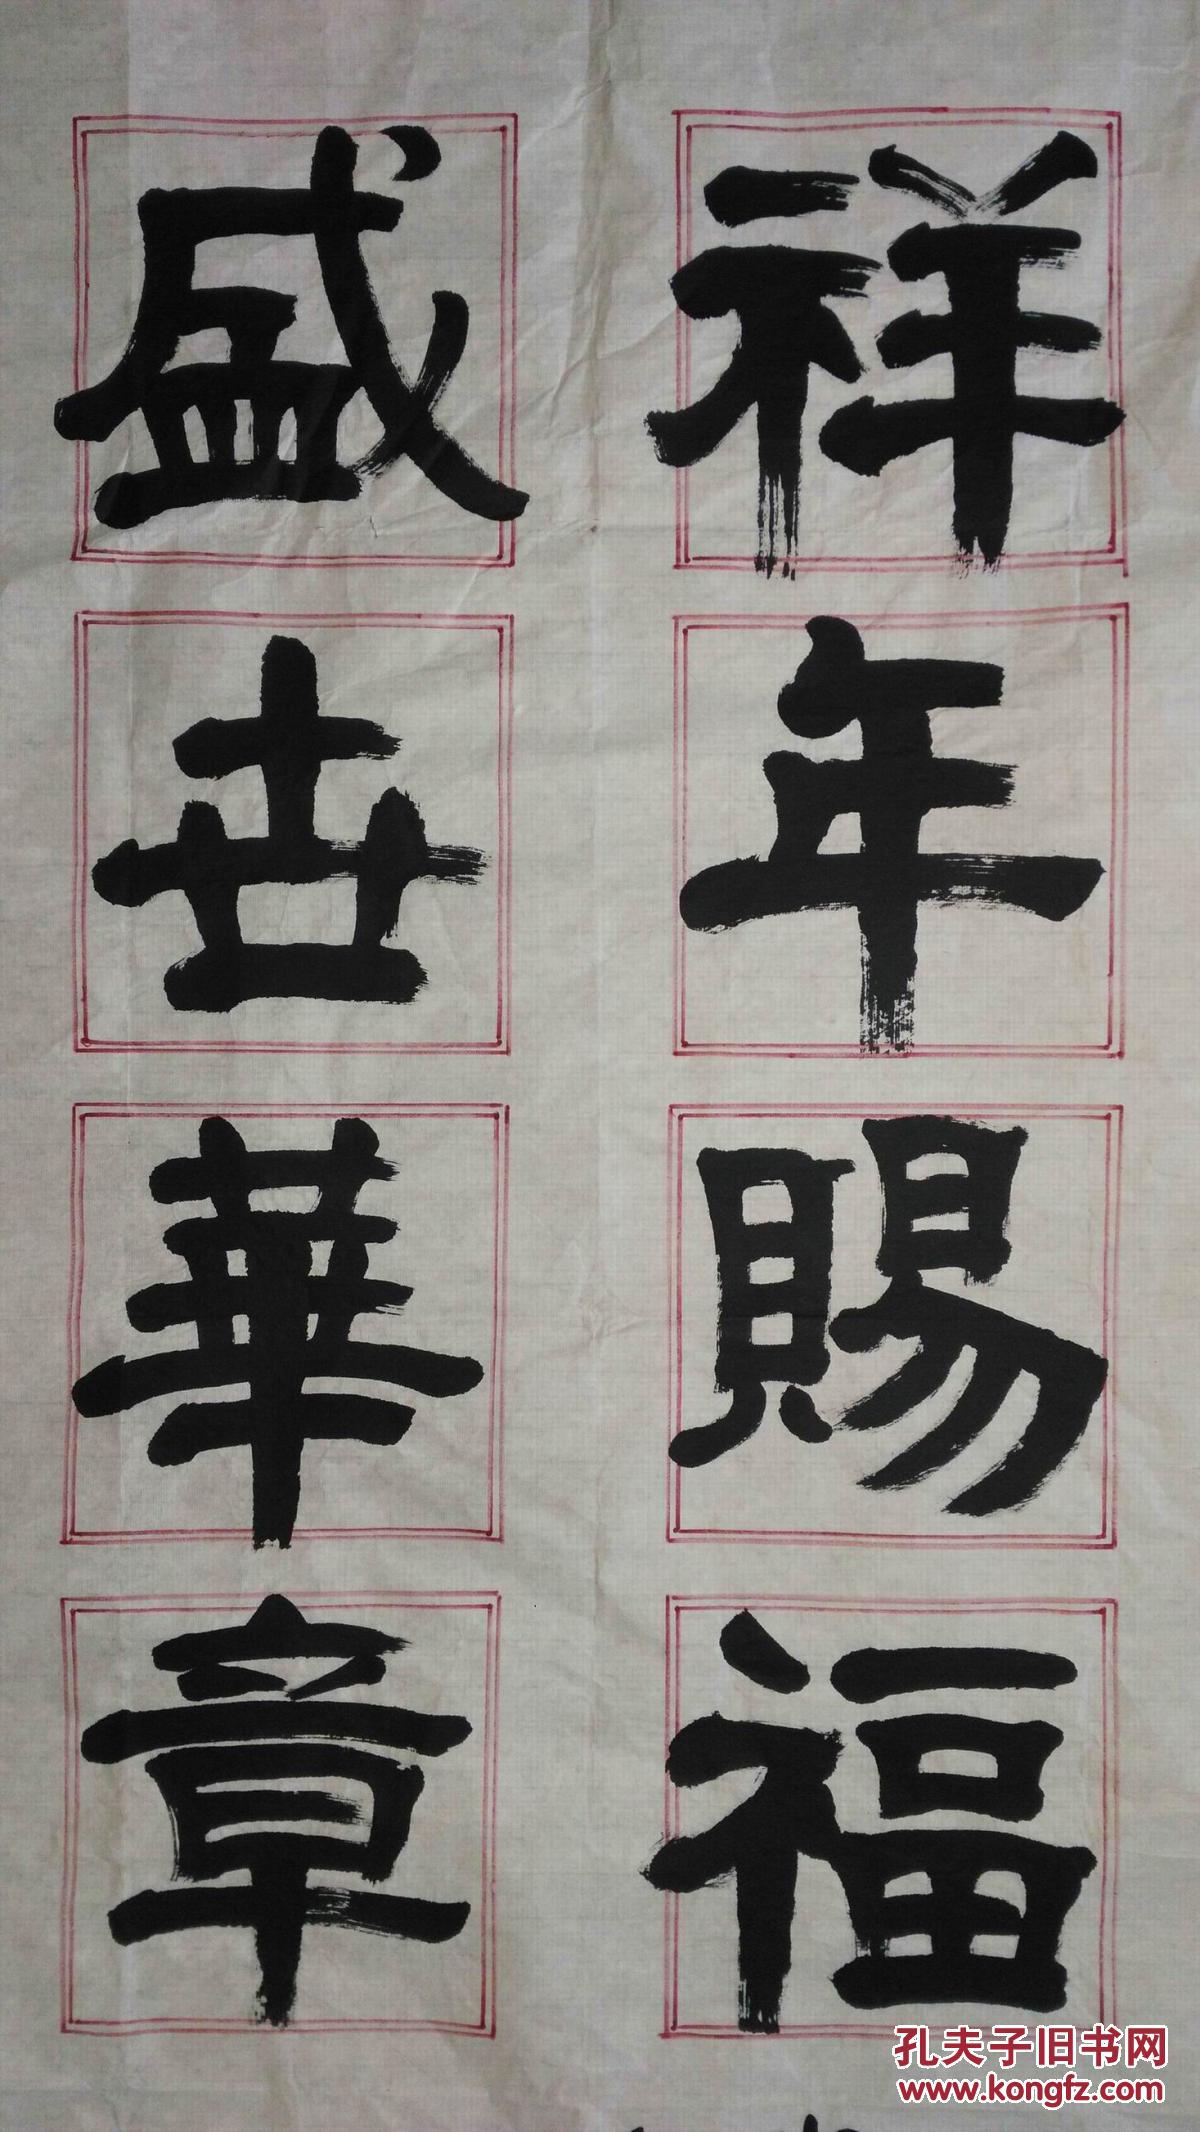 祥年賜福
盛世華章
孔夫子旧书网
www.kongfz.com